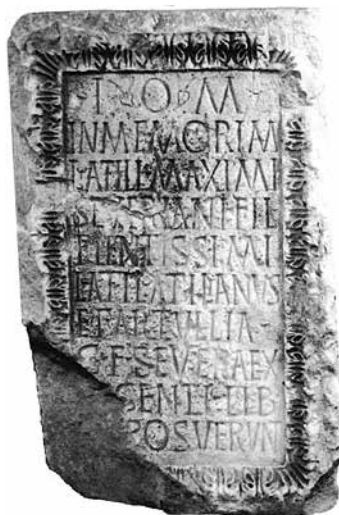 I · O · M
IN MEMORIM
L ATIL MAXIMI
SEVERANI FIL
PIENTISSIMI
L ATIL ATILIANVS
ET ARTVLLIA
G · F · SEVERA EX
SENTI · LIB
POSVERVNT